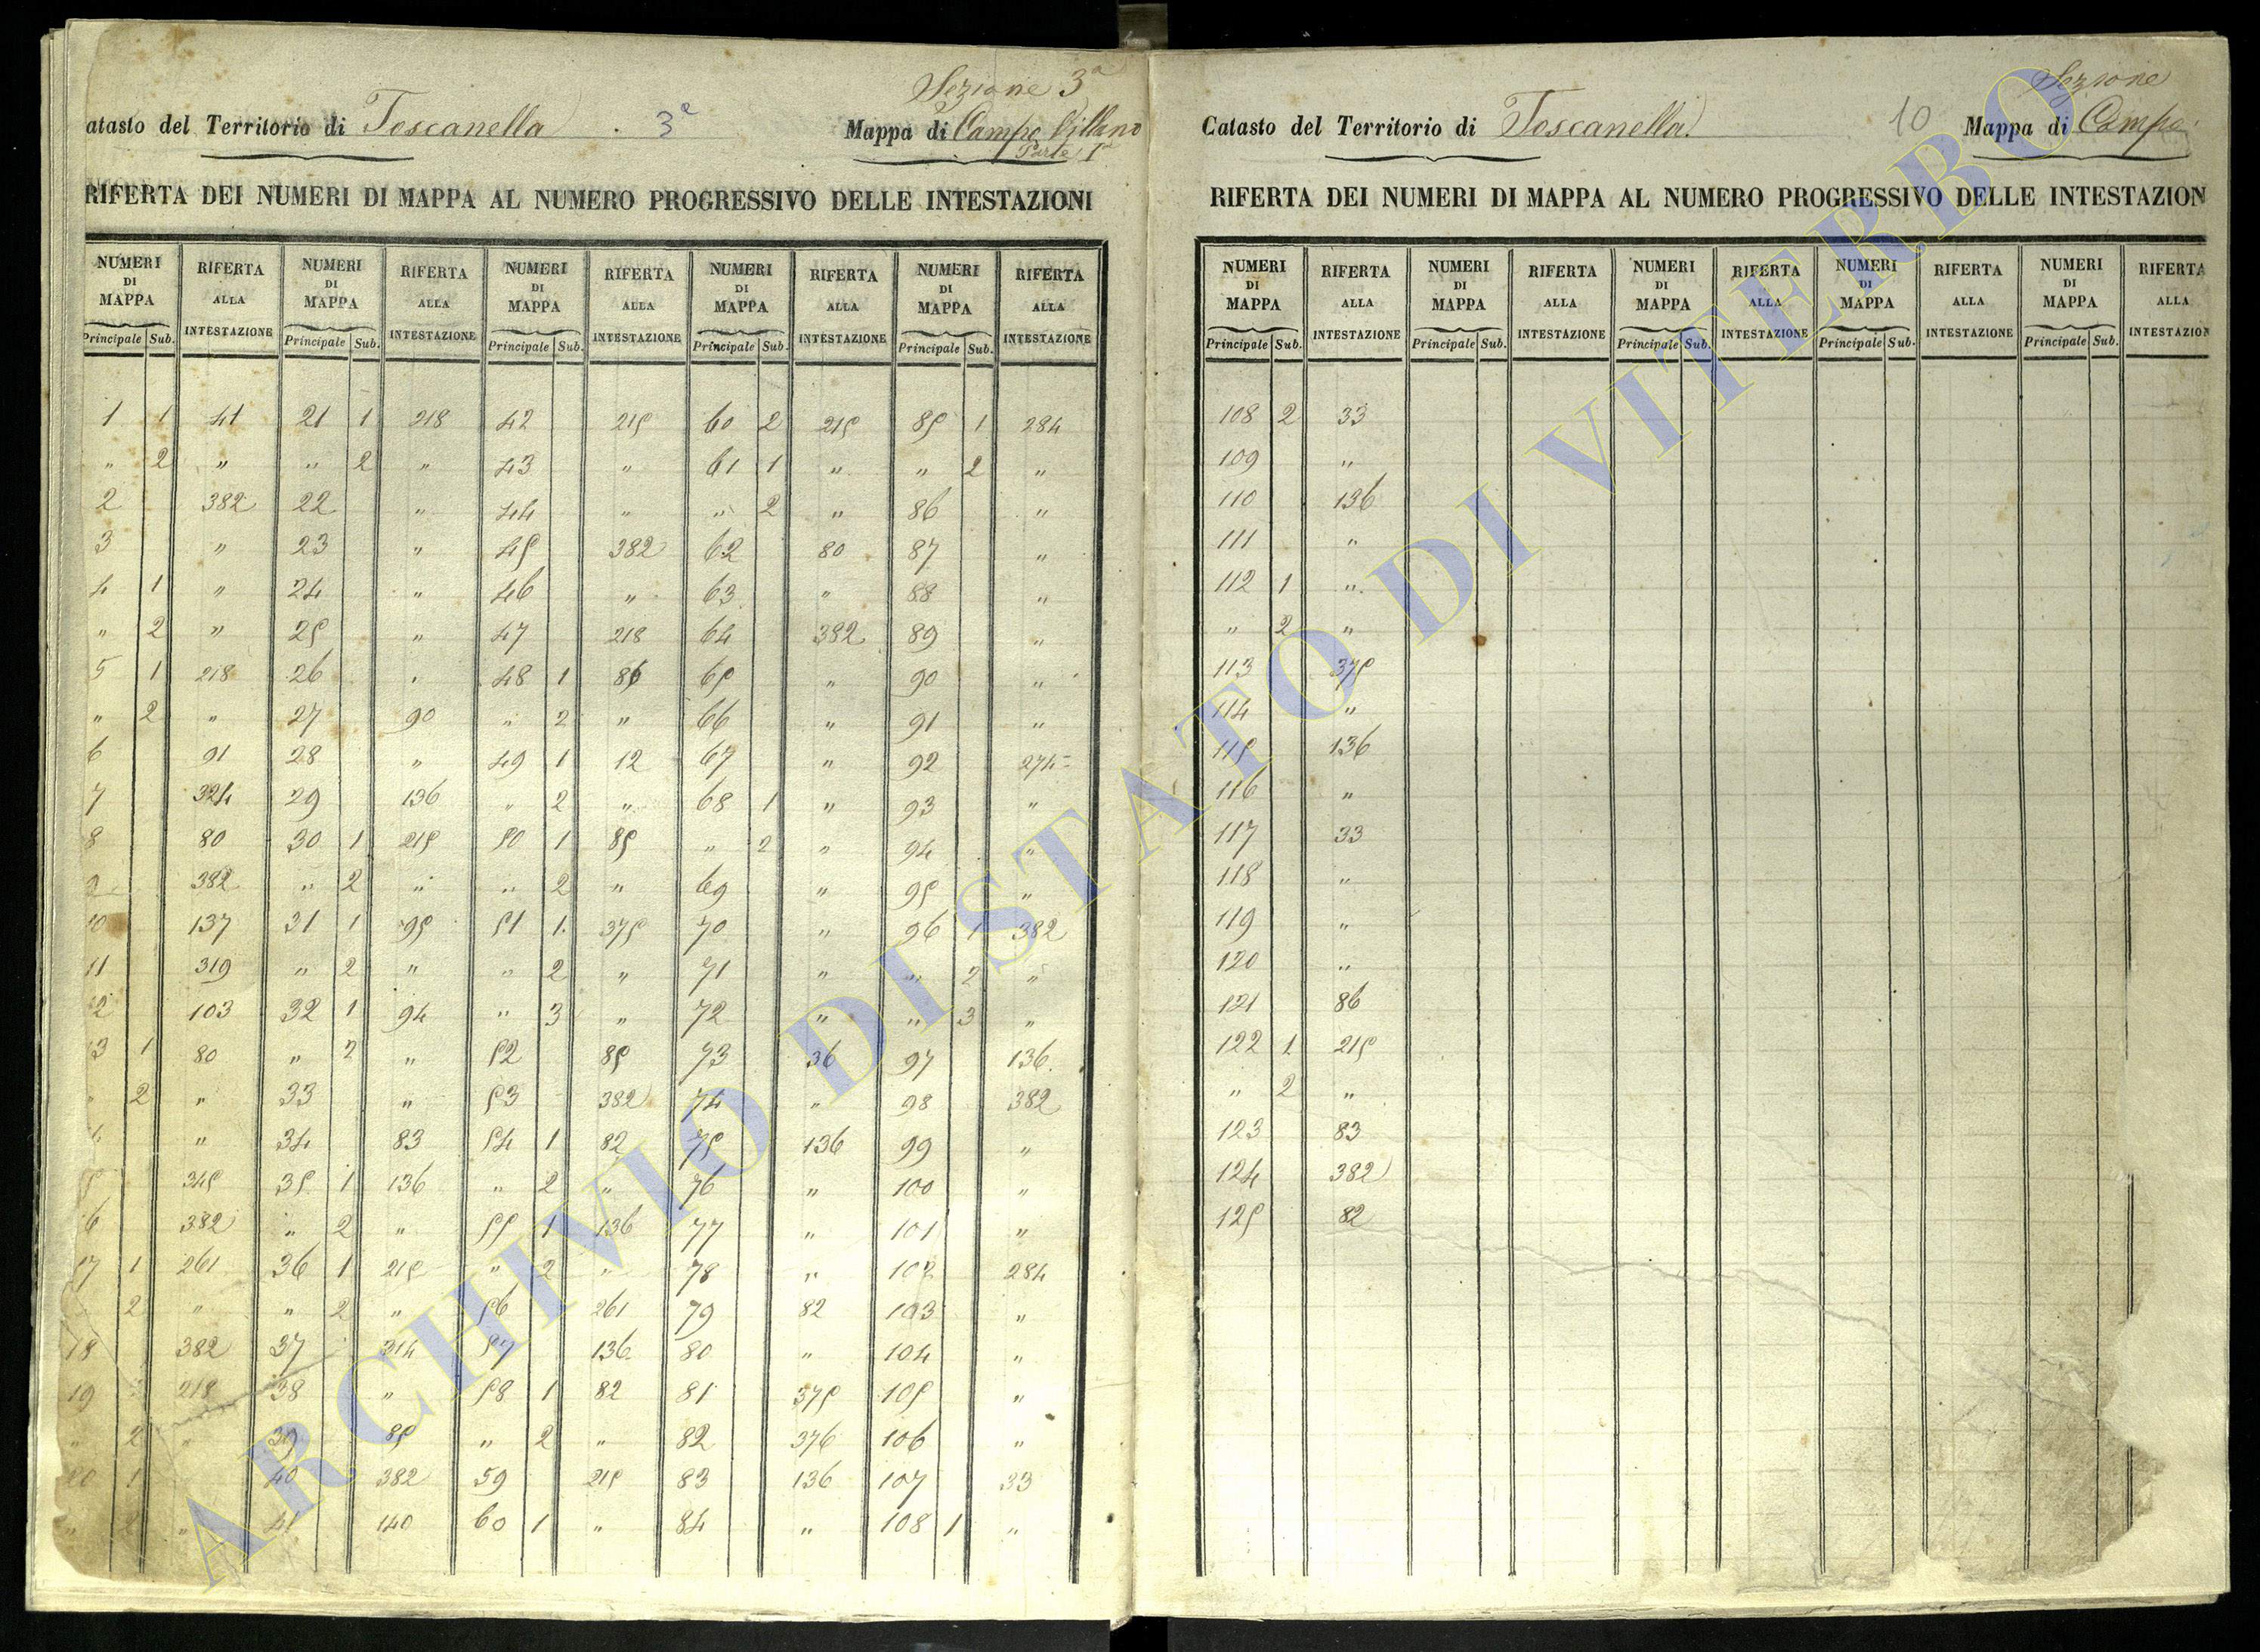 Sezione 3ª
atasto del Territorio di Toscanella . 3ª Mappa di Campo Villano
Parte 1ª
RIFERTA DEI NUMERI DI MAPPA AL NUMERO PROGRESSIVO DELLE INTESTAZIONI
NUMERI RIFERTA NUMERI RIFERTA NUMERI RIFERTA NUMERI RIFERTA NUMERI RIFERTA
DI ALLA DI ALLA DI ALLA DI ALLA DI ALLA
MAPPA INTESTAZIONE MAPPA INTESTAZIONE MAPPA INTESTAZIONE MAPPA INTESTAZIONE MAPPA INTESTAZIONE
Principale Sub. Principale Sub. Principale Sub. Principale Sub. Principale Sub.
1 1 41 21 1 218 42 215 60 2 215 85 1 284
" 2 " " 2 " 43 " 61 1 " " 2 "
2 382 22 " 44 " " 2 " 86 "
3 " 23 " 45 382 62 80 87 "
4 1 " 24 " 46 " 63 " 88 "
" 2 " 25 " 47 218 64 382 89 "
5 1 218 26 " 48 1 86 65 " 90 "
" 2 " 27 90 " 2 " 66 " 91 "
6 91 28 " 49 1 12 67 " 92 274
7 324 29 136 " 2 " 68 1 " 93 "
8 80 30 1 215 50 1 85 " 2 " 94 "
9 382 " 2 " " 2 " 69 " 95 "
10 137 31 1 95 51 1 375 70 " 96 1 382
11 319 " 2 " " 2 " 71 " " 2 "
12 103 32 1 94 " 3 " 72 " " 3 "
13 1 80 " 2 " 52 85 73 36 97 136
" 2 " 33 " 53 382 74 " 98 382
" 34 83 54 1 82 75 136 99 "
5 345 35 1 136 " 2 " 76 " 100 "
6 382 " 2 " 55 1 136 77 " 101 "
17 1 261 36 1 215 " 2 " 78 " 102 284
2 " " 2 " 56 261 79 82 103 "
18 382 37 314 57 136 80 " 104 "
19 218 38 " 58 1 82 81 375 105 "
" 2 " 39 85 " 2 " 82 376 106 "
20 1 40 382 59 215 83 136 107 33
" 2 " 41 140 60 1 " 84 " 108 1 "
Sezione
Catasto del Territorio di Toscanella. 10 Mappa di Campo
RIFERTA DEI NUMERI DI MAPPA AL NUMERO PROGRESSIVO DELLE INTESTAZION
NUMERI RIFERTA NUMERI RIFERTA NUMERI RIFERTA NUMERI RIFERTA NUMERI RIFERTA
DI ALLA DI ALLA DI ALLA DI ALLA DI ALLA
MAPPA INTESTAZIONE MAPPA INTESTAZIONE MAPPA INTESTAZIONE MAPPA INTESTAZIONE MAPPA INTESTAZION
Principale Sub. Principale Sub. Principale Sub. Principale Sub. Principale Sub.
108 2 33
109 "
110 136
111 "
112 1 "
" 2 "
113 375
114 "
115 136
116 "
117 33
118 "
119 "
120 "
121 86
122 1 215
" 2 "
123 83
124 382
125 82
ARCHIVIO DI STATO DI VITERBO